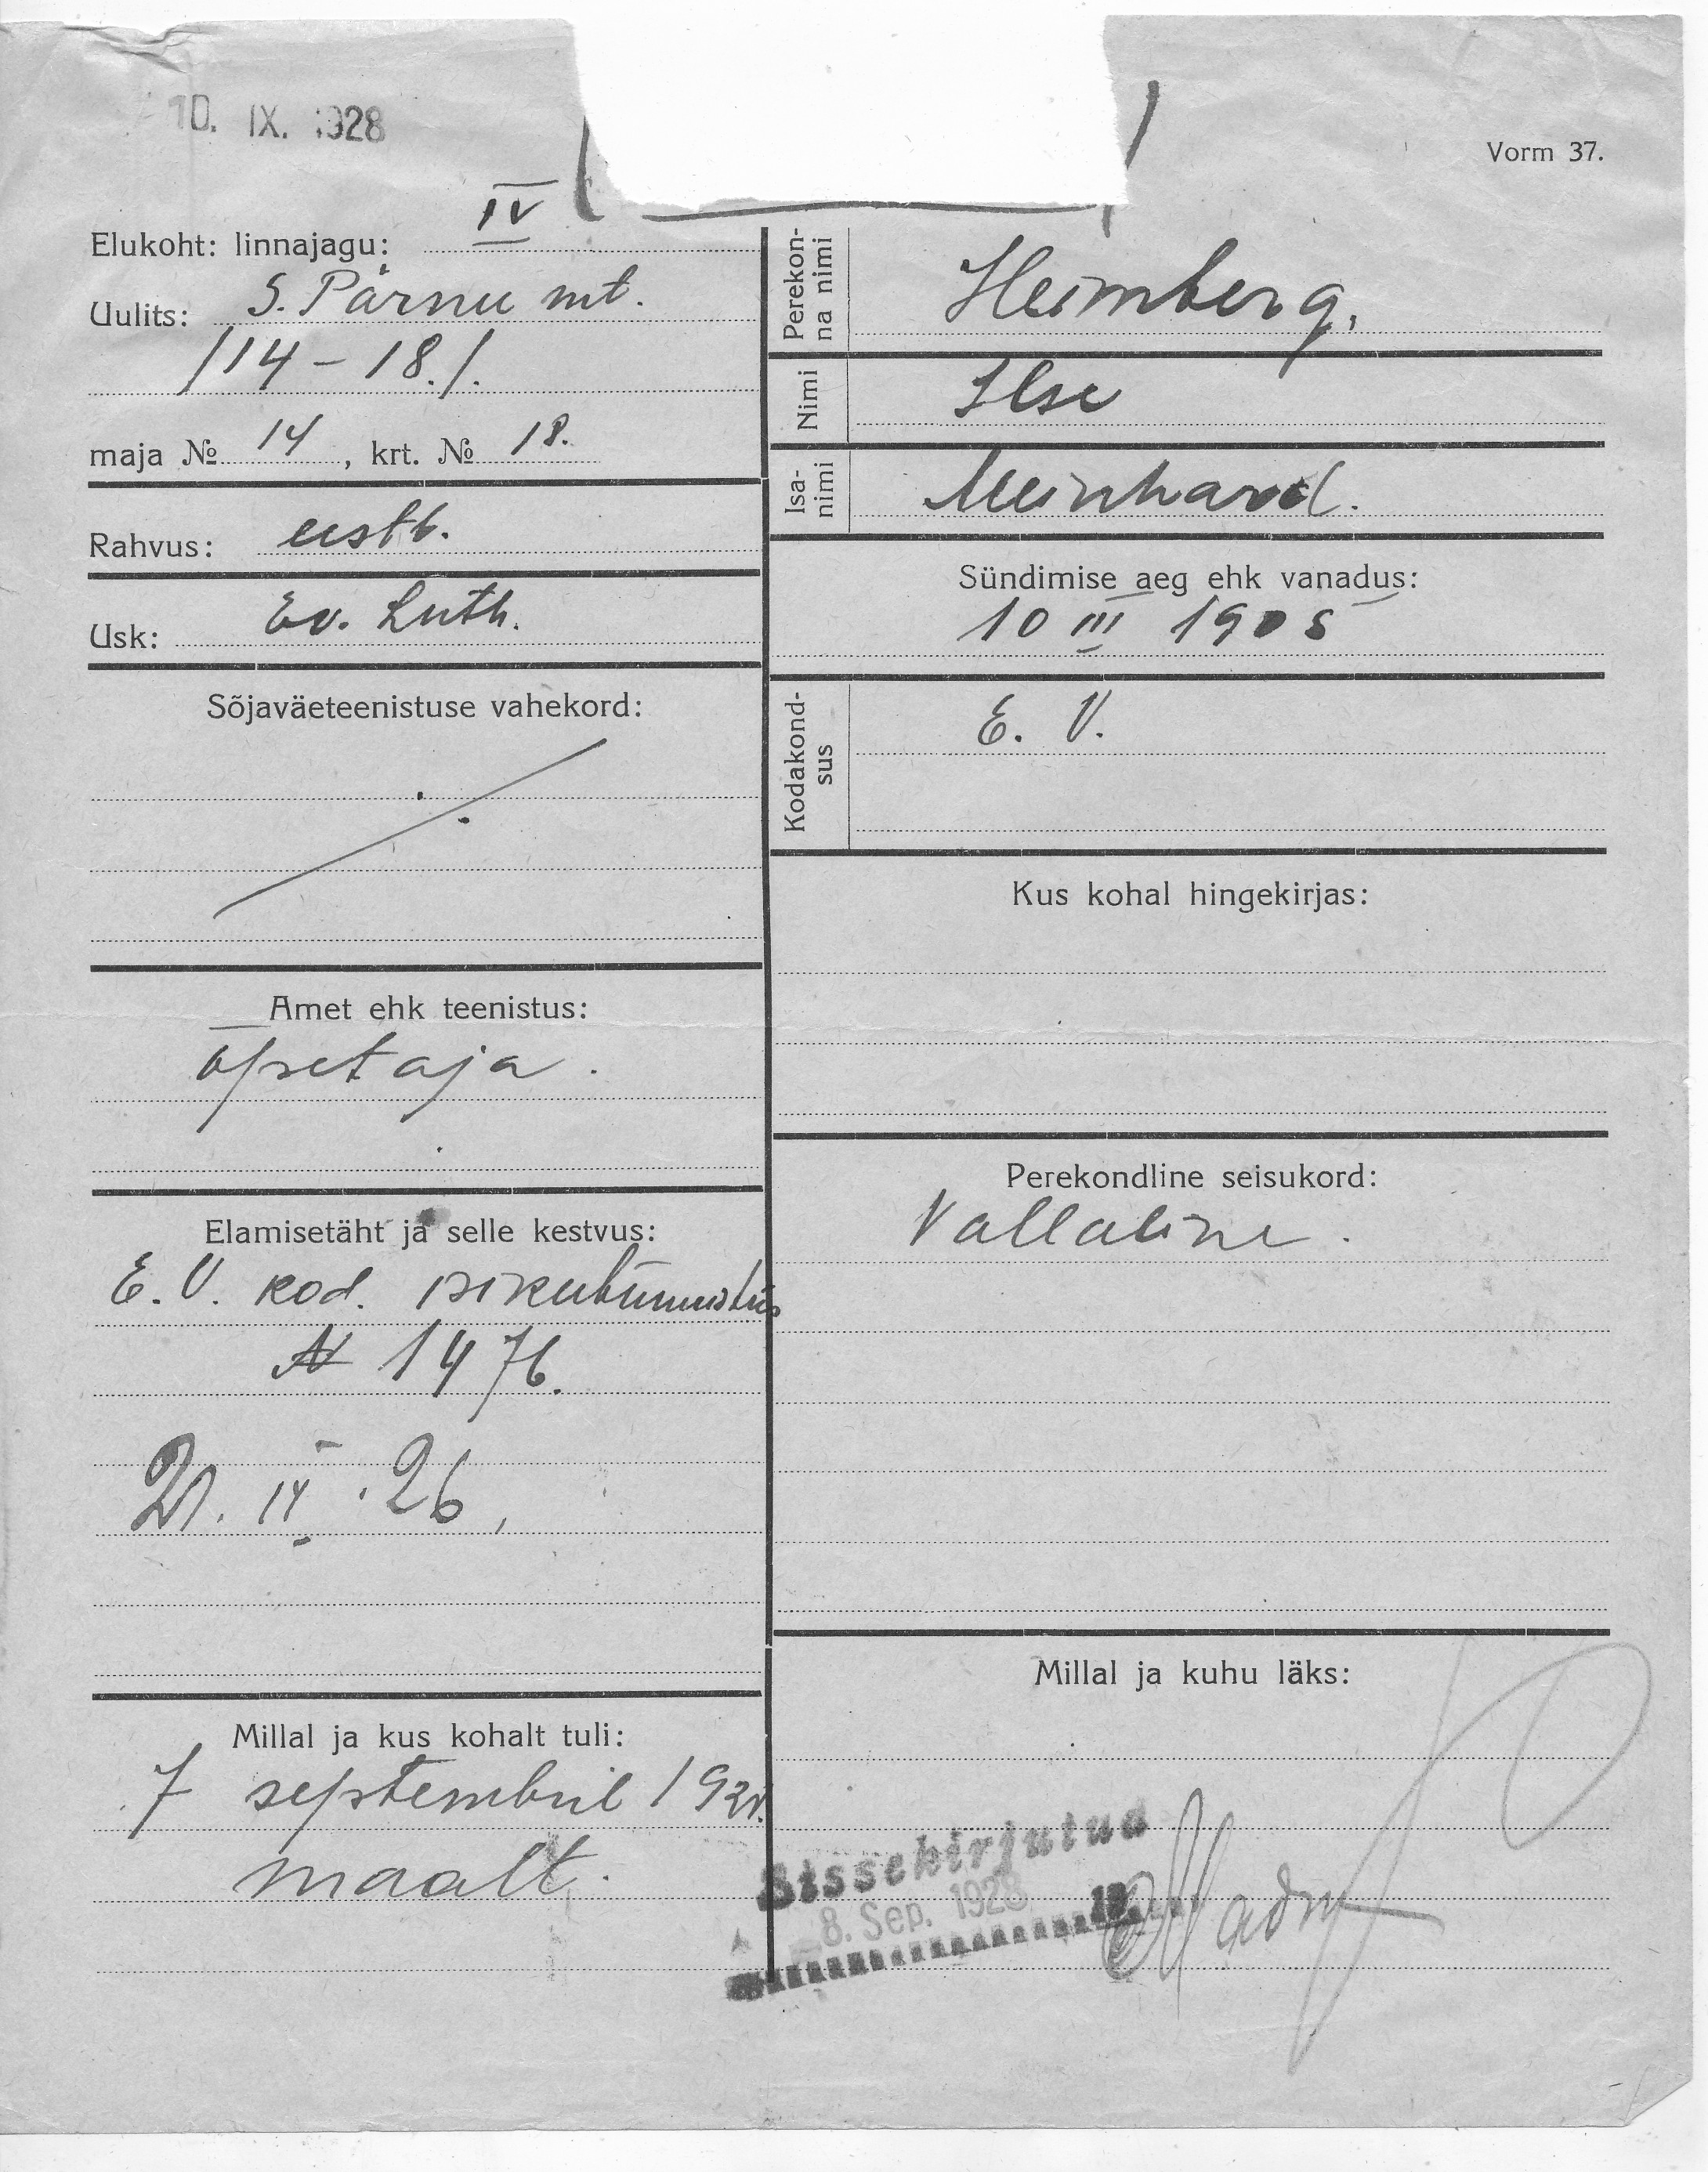 10. IX. 1928
Vorm 37.
Elukoht: linnajagu: IV
Uulits: S. Pärnu mt.
/14 – 18./.
maja № 14, krt. № 18.
Rahvus: eestl.
Usk: Ev. Luth.
Sõjaväeteenistuse vahekord:
Amet ehk teenistus:
õpetaja.
Elamisetäht ja selle kestvus:
E. V. kod. isikutunnistus
N 1476.
IV. 26.
Millal ja kus kohalt tuli:
7 septembril 1928.
maalt.
Perekonna nimi Heimberg.
Nimi Ilse
Isanimi Meinhard.
Sündimise aeg ehk vanadus:
10 III 1905
Kodakondsus E. V.
Kus kohal hingekirjas:
Perekondline seisukord:
Vallaline.
Millal ja kuhu läks:
Sissekirjutud
8. Sep. 1928
19